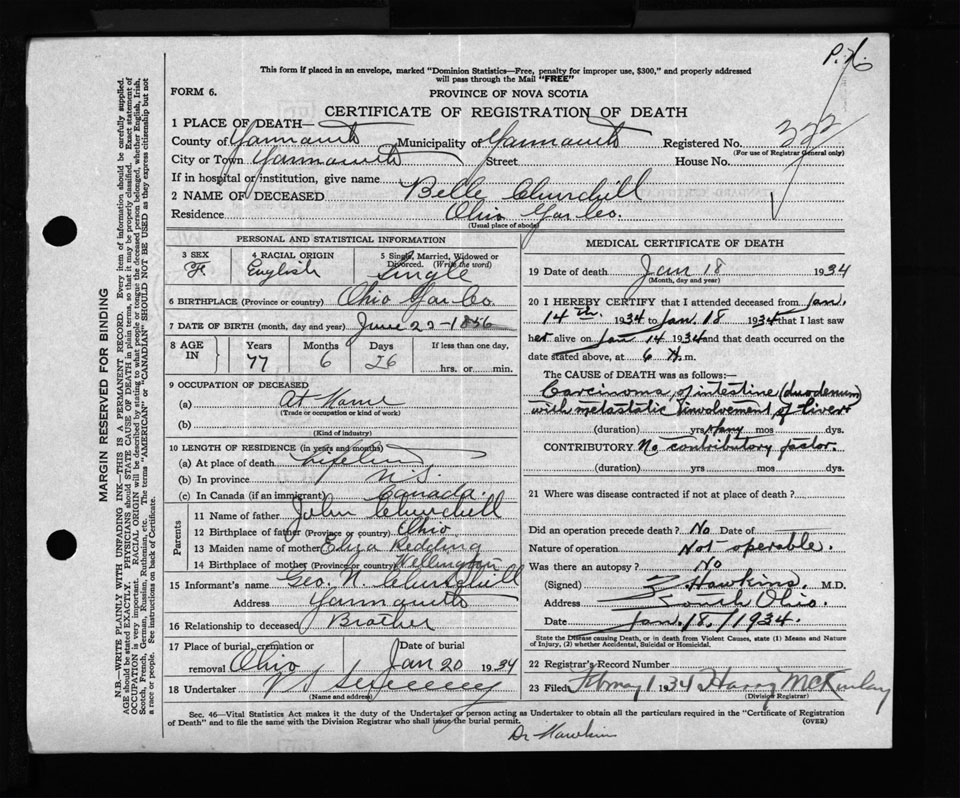 P.X.
This form if placed in an envelope, marked "Dominion Statistics—Free, penalty for improper use, $300," and properly addressed
will pass through the Mail "FREE"
FORM 6.
PROVINCE OF NOVA SCOTIA
CERTIFICATE OF REGISTRATION OF DEATH
1 PLACE OF DEATH—
County of Yarmouth Municipality of Yarmouth Registered No. 322
(For use of Registrar General only)
City or Town Yarmouth Street House No.
If in hospital or institution, give name
2 NAME OF DECEASED Belle Churchill
Residence Ohio Yar Co.
(Usual place of abode)
PERSONAL AND STATISTICAL INFORMATION
3 SEX 4 RACIAL ORIGIN 5 Single, Married, Widowed or Divorced. (Write the word)
F English Single
6 BIRTHPLACE (Province or country) Ohio Yar Co.
7 DATE OF BIRTH (month, day and year) June 22-1856
8 AGE IN Years Months Days If less than one day,
77 6 26 hrs. or min.
9 OCCUPATION OF DECEASED
(a) At Home
(Trade or occupation or kind of work)
(b)
(Kind of industry)
10 LENGTH OF RESIDENCE (in years and months)
(a) At place of death Lifetime
(b) In province N.S.
(c) In Canada (if an immigrant) Canada.
Parents
11 Name of father John Churchill
12 Birthplace of father (Province or country) Ohio
13 Maiden name of mother Eliza Redding
14 Birthplace of mother (Province or country) Wellington
15 Informant's name Geo. N. Churchill
Address Yarmouth
16 Relationship to deceased Brother
17 Place of burial, cremation or removal Ohio Date of burial Jan 20 1934
18 Undertaker
(Name and address)
MEDICAL CERTIFICATE OF DEATH
19 Date of death Jan 18 1934
(Month, day and year)
20 I HEREBY CERTIFY that I attended deceased from Jan.
14th. 1934 to Jan. 18 1934 that I last saw
her alive on Jan 14 1934 and that death occurred on the
date stated above, at 6 A.m.
The CAUSE of DEATH was as follows:—
Carcinoma of intestine (duodenum)
with metastatic involvement of liver
(duration) yrs Many mos days
CONTRIBUTORY No contributory factor.
(duration) yrs mos days
21 Where was disease contracted if not at place of death?
Did an operation precede death? No Date of
Nature of operation Not operable.
Was there an autopsy? No
(Signed) Hawkins. M.D.
Address South Ohio.
Date Jan. 18, 1934.
State the Disease causing Death, or in death from Violent Causes, state (1) Means and Nature
of Injury, (2) whether Accidental, Suicidal or Homicidal.
22 Registrar's Record Number
23 Filed 1 1934 Harry McKinlay
(Division Registrar)
Sec. 46—Vital Statistics Act makes it the duty of the Undertaker or person acting as Undertaker to obtain all the particulars required in the "Certificate of Registration
of Death" and to file the same with the Division Registrar who shall issue the burial permit. (OVER)
Dr Hawkins
MARGIN RESERVED FOR BINDING
N.B.—WRITE PLAINLY WITH UNFADING INK—THIS IS A PERMANENT RECORD. Every item of information should be carefully supplied.
AGE should be stated EXACTLY. PHYSICIANS should STATE CAUSE OF DEATH in plain terms, so that it may be properly classified. Exact statement of
OCCUPATION is very important. RACIAL ORIGIN will be described by stating to what people or tongue the deceased person belonged, whether English, Irish,
Scotch, French, German, Russian, Ruthenian, etc. The terms "AMERICAN" or "CANADIAN" SHOULD NOT BE USED as they express citizenship but not
a race or people. See instructions on back of Certificate.